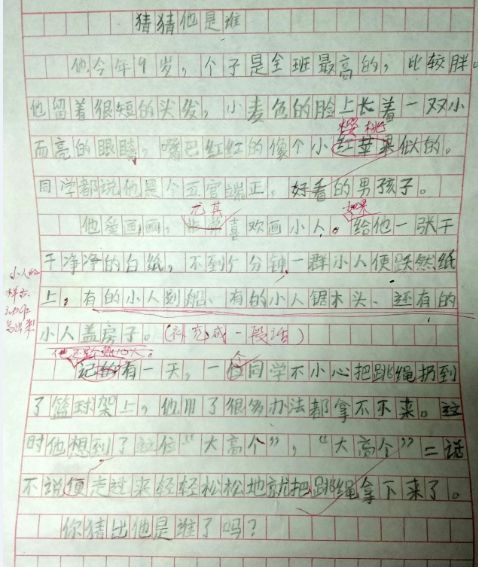 猜猜他是谁
他今年9岁，个子是全班最高的，比较胖。
他留着很短的头发，小麦色的脸上长着一双小
樱桃
而亮的眼睛，嘴巴红红的像个小红苹果似的。
同学都说他是个五官端正、好看的男孩子。
尤其
如果
他爱画画，喜欢画小人。给他一张干
干净净的白纸，不到5分钟，一群小人便跃然纸
小人的
上，有的小人划船、有的小人锯木头、还有的
小人盖房子。（补充成一段话）
他还
记得有一天，一个同学不小心把跳绳扔到
了篮球架上，他用了很多办法都拿不下来。这
时他想到了这位“大高个”，“大高个”二话
不说便走过来轻轻松松地就把跳绳拿下来了。
你猜出他是谁了吗？